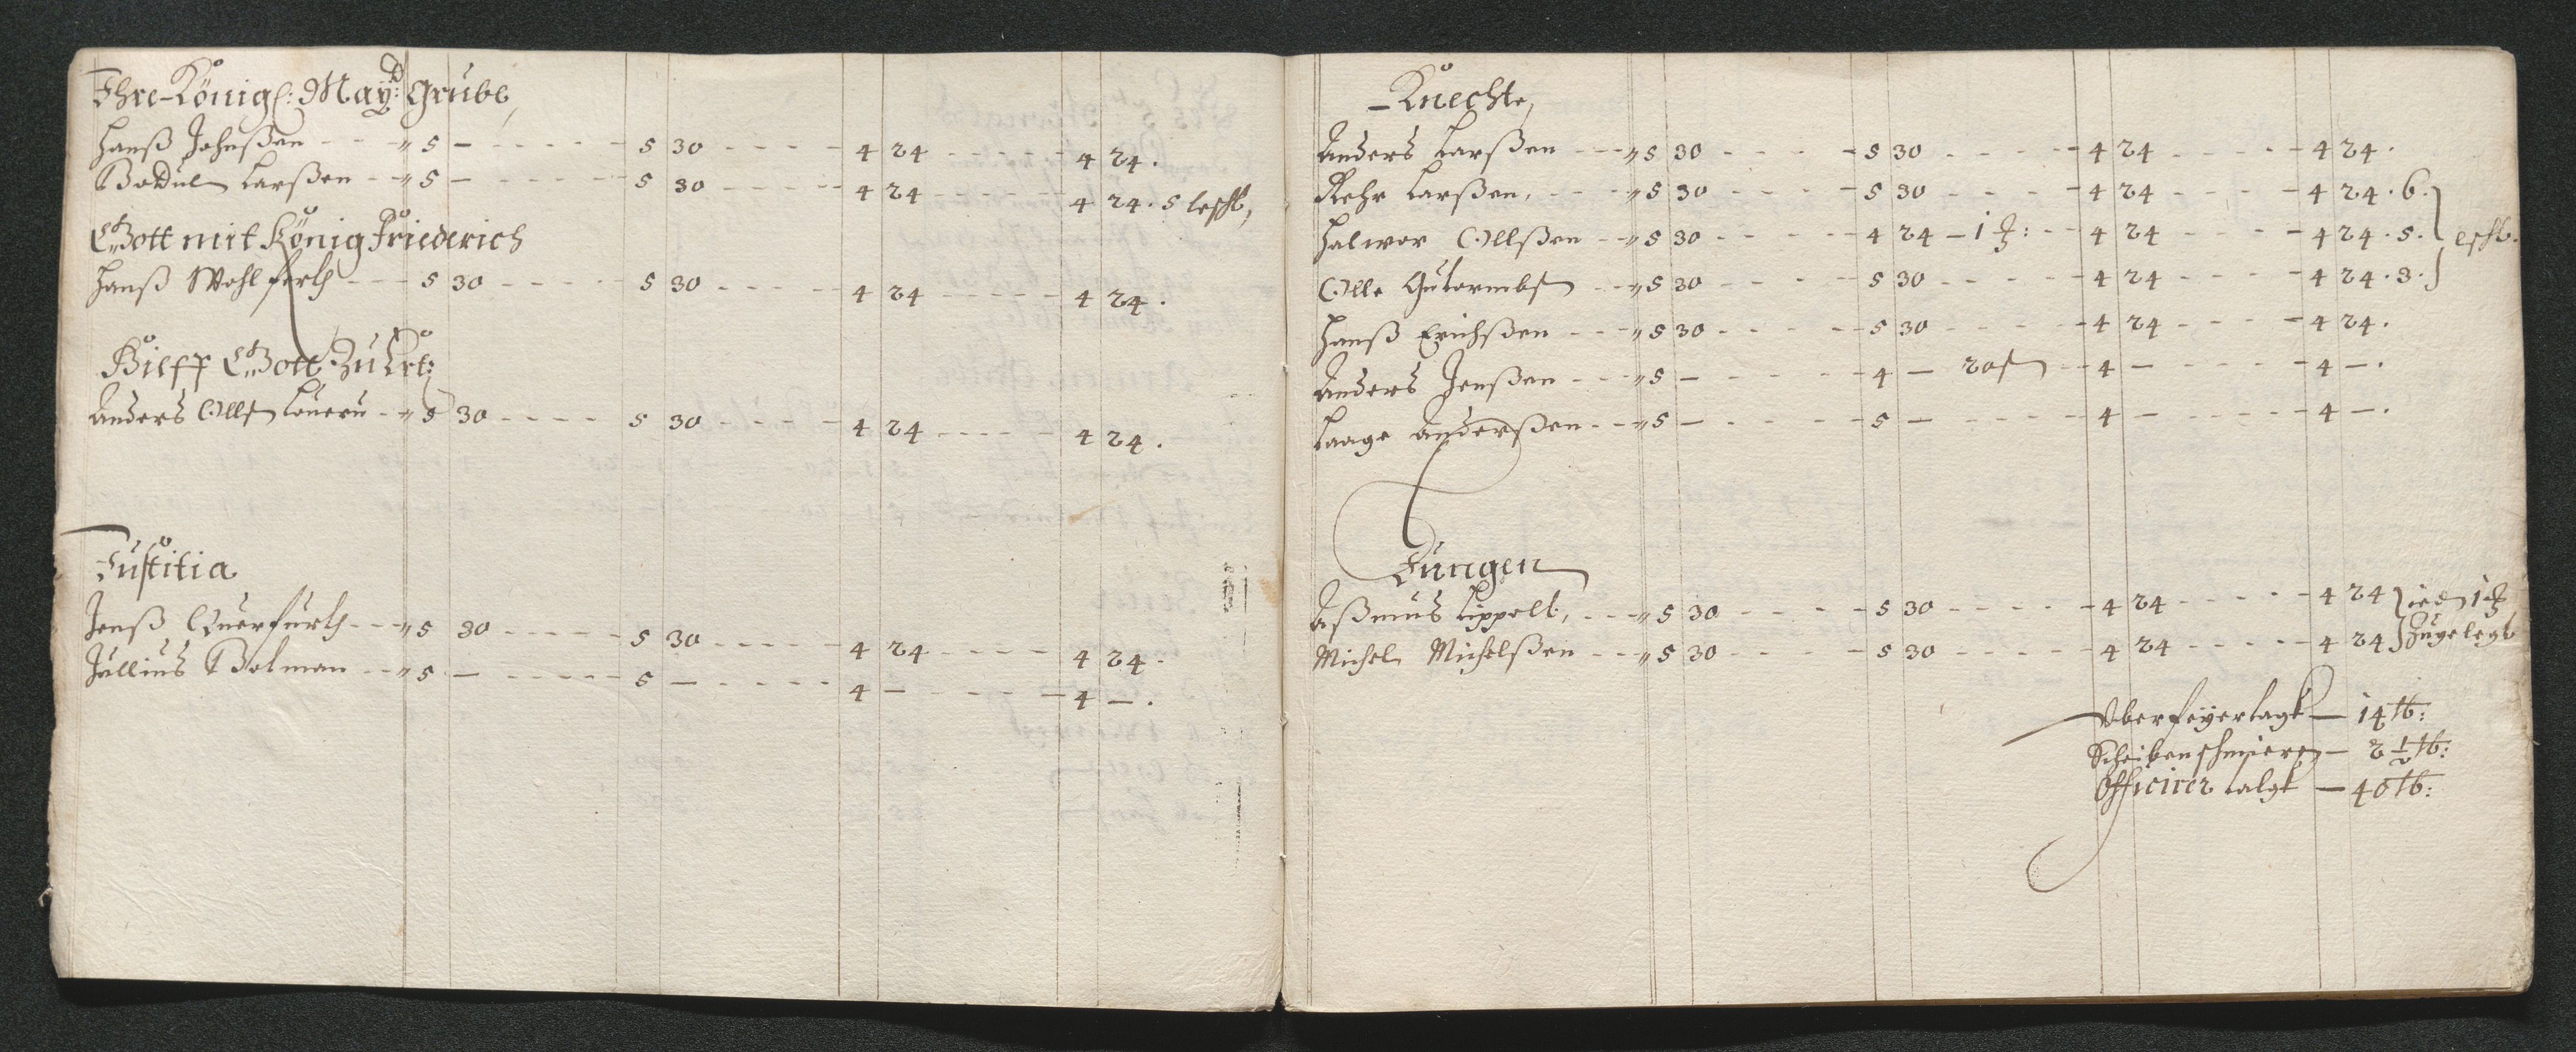 Ihre Königl: Mayd: Grube,
Hanß Johnßen - - - " 5 - - - - - - 5 30 - - - - 4 24 - - - - - 4 24.
Bottul Larßen - - " 5 - - - - - - 5 30 - - - - 4 24 - - - - - 4 24. 5
Gott mit König Friederich
Hanß Wohlfarth - - - 5 30 - - - - - 5 30 - - - - - 4 24 - - - - - 4 24.
Hilff Gott Zu
Anders Ollß - " 5 30 - - - - 5 30 - - - - 4 24 - - - - 4 24.
Justitia
Jenß Querfurth - - - " 5 30 - - - - - 5 30 - - - - - 4 24 - - - - 4 24.
Jullius Bolman - - " 5 - - - - - - 5 - - - - - 4 - - - - - 4 -.
Knechte,
Anders Larßen - - - " 5 30 - - - - 5 30 - - - - 4 24 - - - - 4 24.
Larßen, - - - - " 5 30 - - - - 5 30 - - - - 4 24 - - - - 4 24. 6.
Halwor Ollßen - - " 5 30 - - - - 4 24 - 1 : - - 4 24 - - - - 4 24. 5.
Olle - - " 5 30 - - - - 5 30 - - - - 4 24 - - - - 4 24. 3.
Hanß Erichßen - - - " 5 30 - - - - 5 30 - - - - 4 24 - - - - 4 24.
Anders Jenßen - - - " 5 - - - - - 4 - - - 4 - - - - - 4 -.
Laage Anderßen - - - " 5 - - - - - 5 - - - - - 4 - - - - - 4 -.
Jungen
Aßmus Lippolt, - - - " 5 30 - - - - 5 30 - - - - - 4 24 - - - - - 4 24
Michel Michelßen - - - " 5 30 - - - - 5 30 - - - - - 4 24 - - - - 4 24 Zugelegt
14 tb:
Scheibenschmieren - 2 1/2 tb:
Officirer talgk - 40 tb: